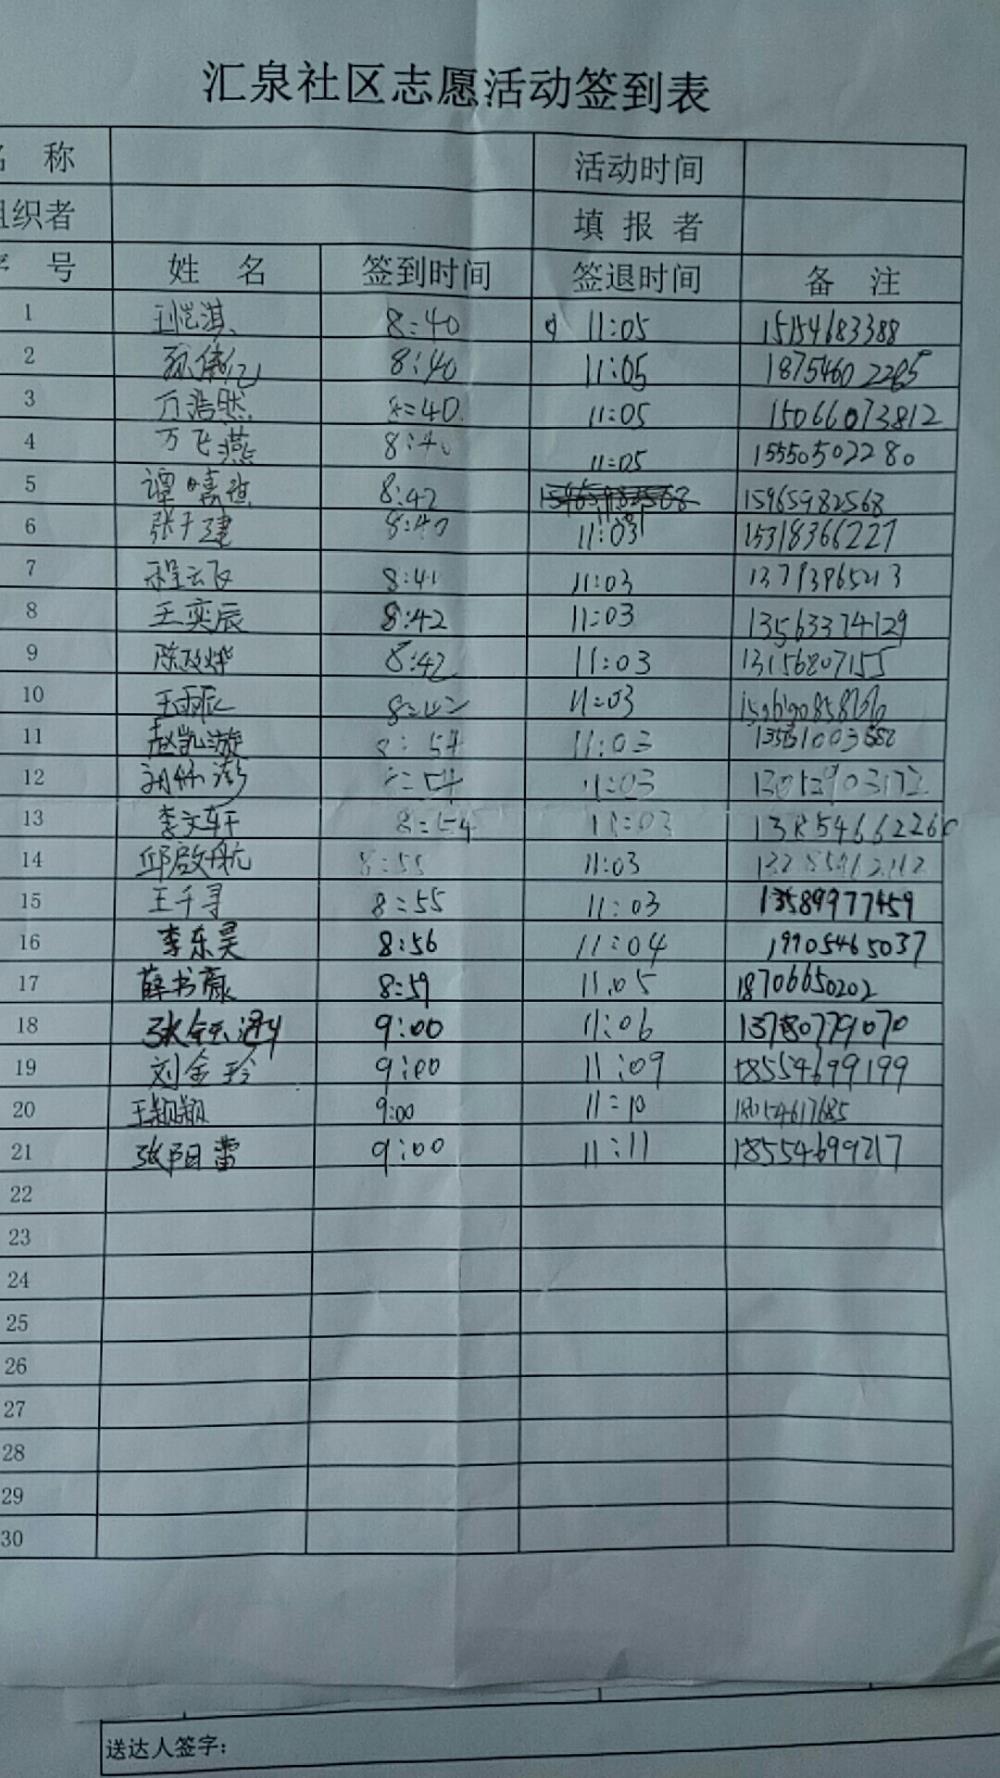 汇泉社区志愿活动签到表
称 活动时间
织者 填报者
号 姓名 签到时间 签退时间 备注
1 8:40 11:05 15154683388
2 8:40 11:05 18754602285
3 万浩然 8:40 11:05 15066073812
4 万飞燕 8:40 11:05 15550502280
5 谭 8:42 15965982568
6 张于建 8:40 11:03 15318366227
7 程云飞 8:41 11:03
8 王奕辰 8:42 11:03 13563374129
9 8:42 11:03 13156807155
10 王雨辰 8:42 11:03
11 赵凯漩 8:54 11:03
12 8:54 11:03
13 李文轩 8:54 11:03 13854662260
14 邱啟航 8:55 11:03
15 王千寻 8:55 11:03 13589977459
16 李东昊 8:56 11:04 19905465037
17 薛书薇 8:59 11:05 18706650202
18 9:00 11:06 13780779070
19 刘金玲 9:00 11:09 18554699199
20 王颖颖 9:00 11:10 18054617685
21 张阳蕾 9:00 11:11 18554699217
22
23
24
25
26
27
28
29
30
送达人签字：